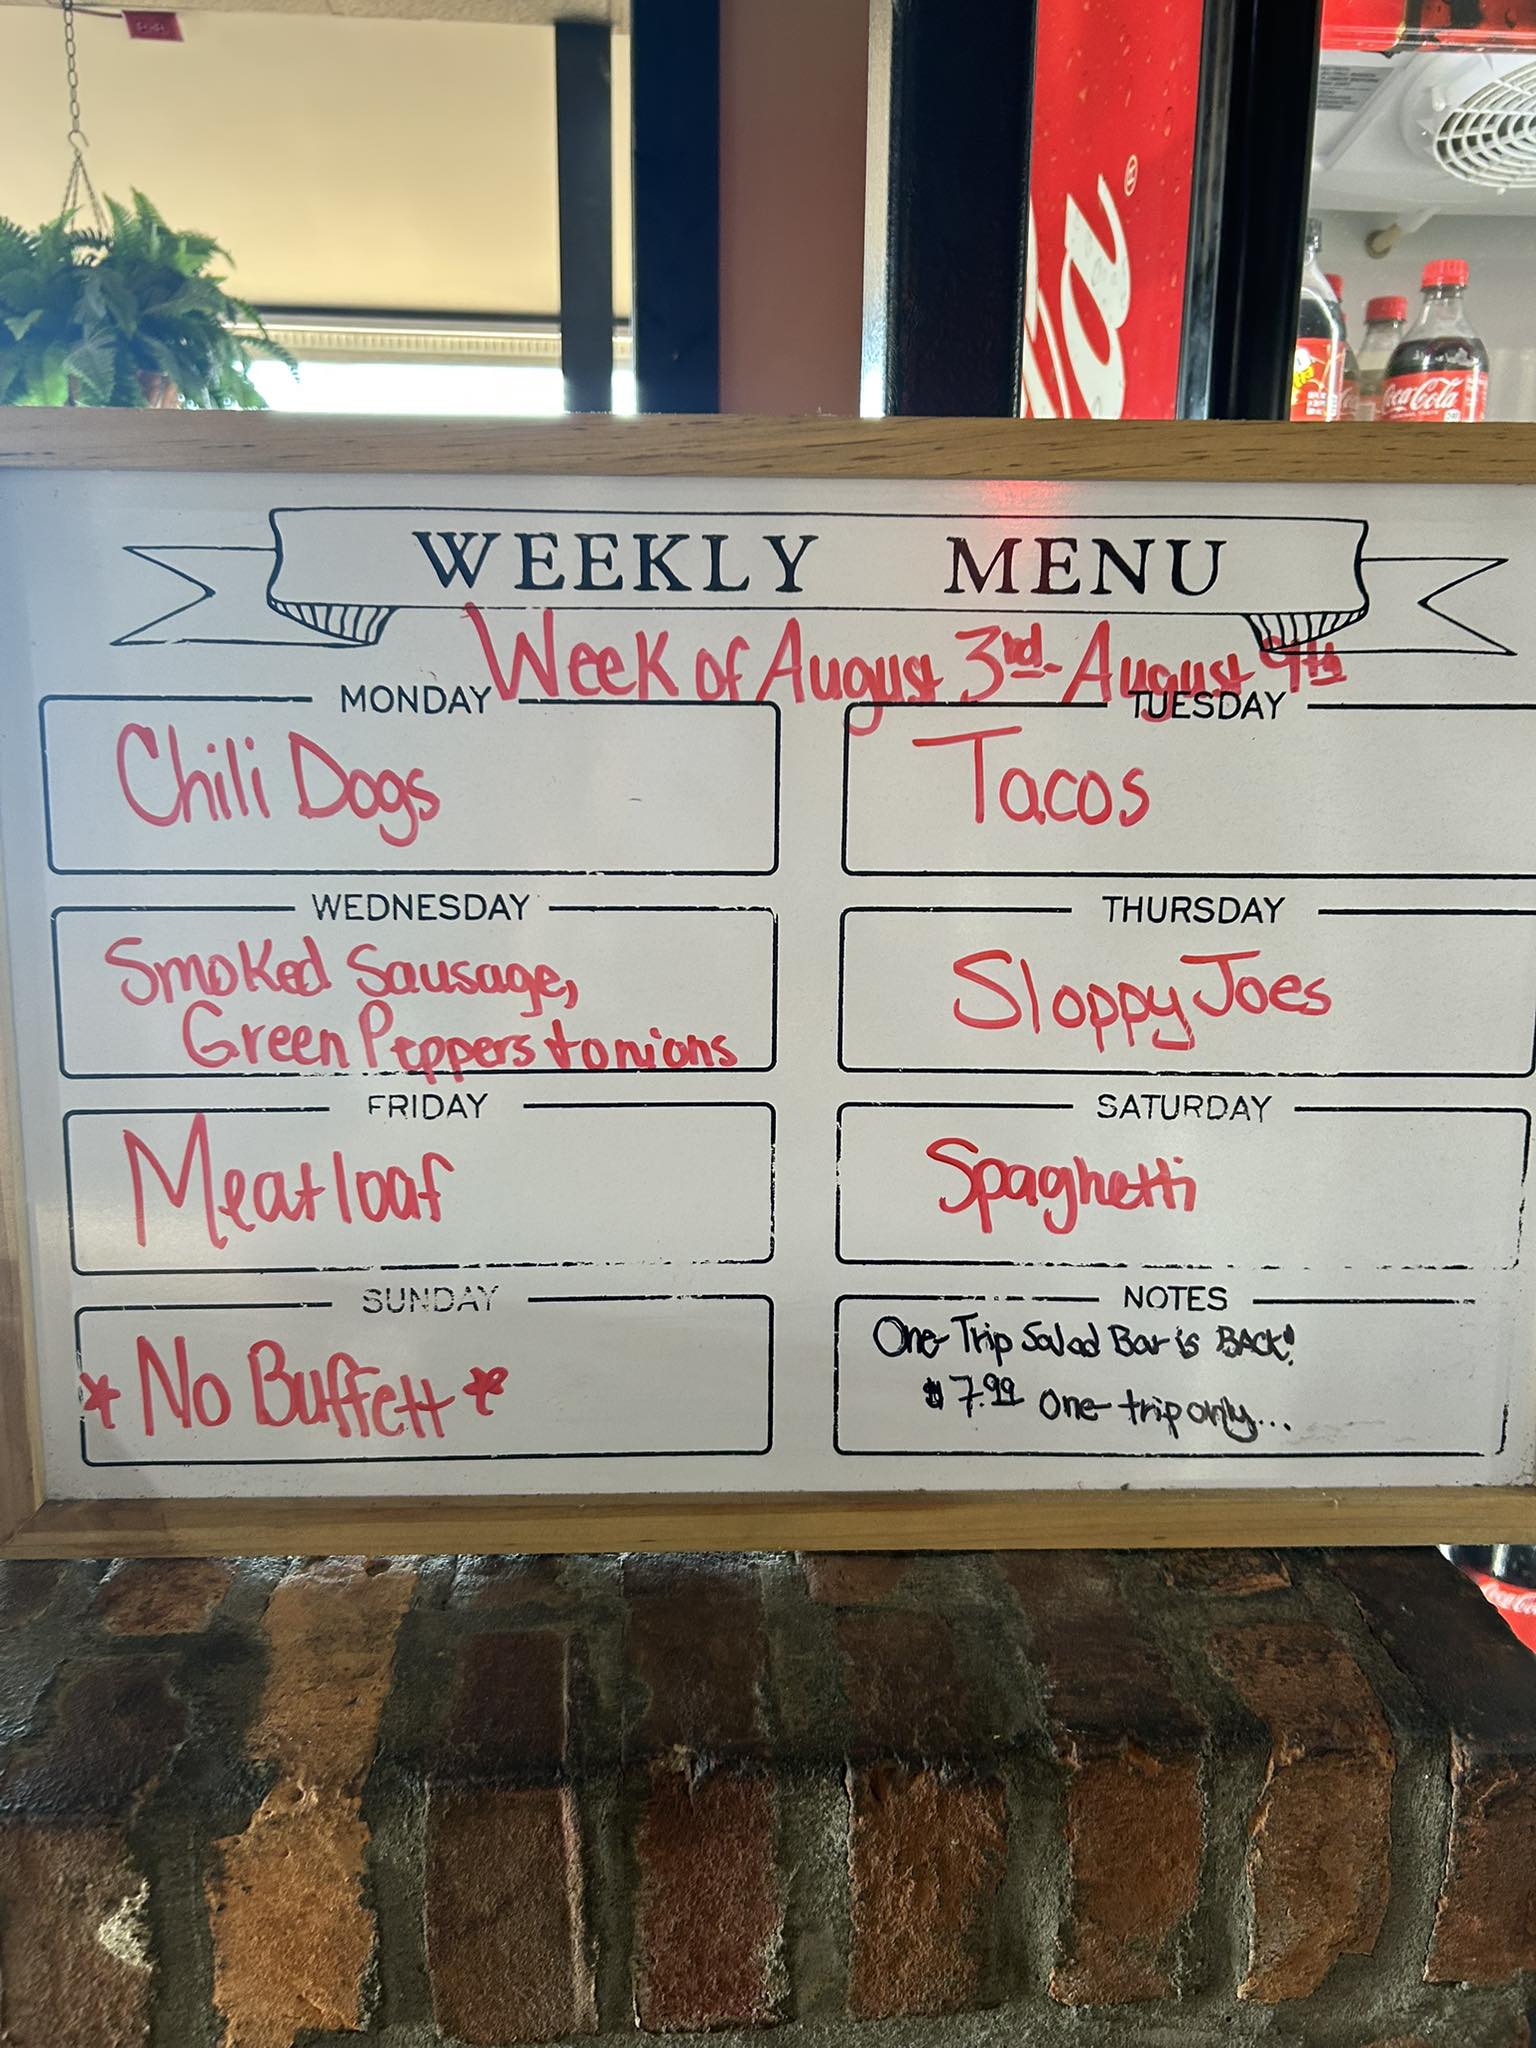 WEEKLY MENU
Week of August 3rd - August 9th
MONDAY
Chili Dogs
TUESDAY
Tacos
WEDNESDAY
Smoked Sausage,
Green Peppers + onions
THURSDAY
Sloppy Joes
FRIDAY
Meatloaf
SATURDAY
Spaghetti
SUNDAY
* No Buffett *
NOTES
One Trip Salad Bar is BACK!
$7.99 One trip only...
Coca-Cola